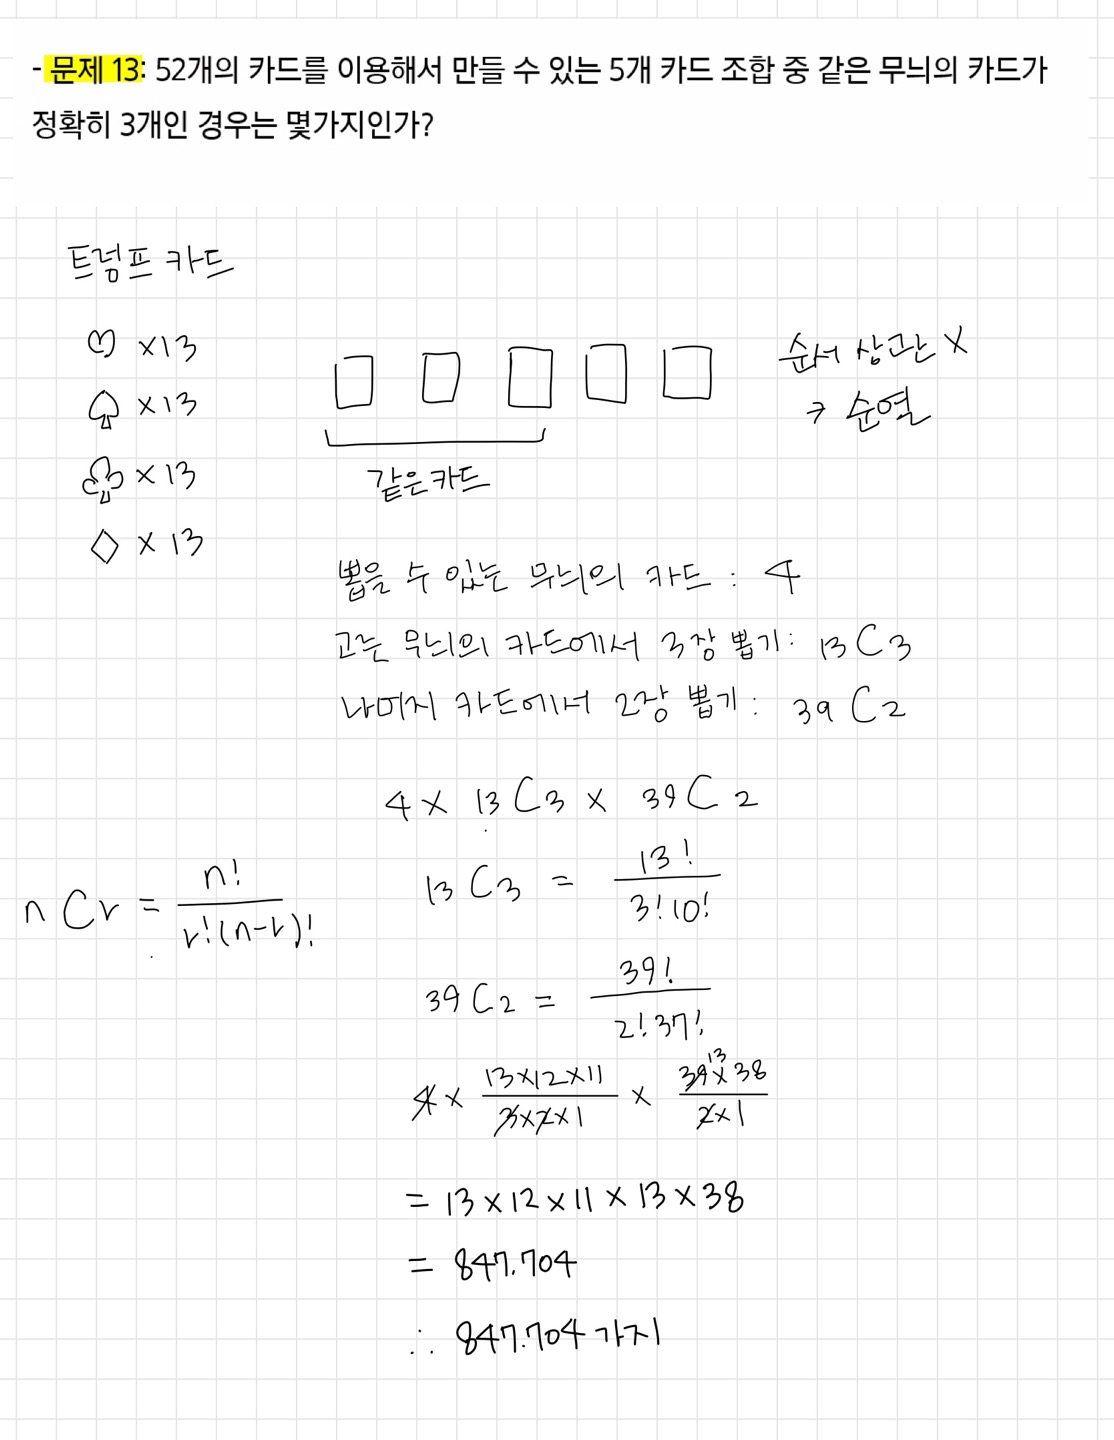 - 문제 13: 52개의 카드를 이용해서 만들 수 있는 5개 카드 조합 중 같은 무늬의 카드가
정확히 3개인 경우는 몇가지인가?
트럼프 카드
♡ ×13
♤ ×13
♧ ×13
◇ ×13
같은카드
순서 상관 X
→ 순열
뽑을 수 있는 무늬의 카드 : 4
고른 무늬의 카드에서 3장 뽑기: 13C3
나머지 카드에서 2장 뽑기: 39C2
4 × 13C3 × 39C2
nCr = n! / r!(n-r)!
13C3 = 13! / 3!10!
39C2 = 39! / 2!37!
4 × 13×12×11 / 3×2×1 × 39×38 / 2×1
13
= 13×12×11×13×38
= 847.704
∴ 847.704가지